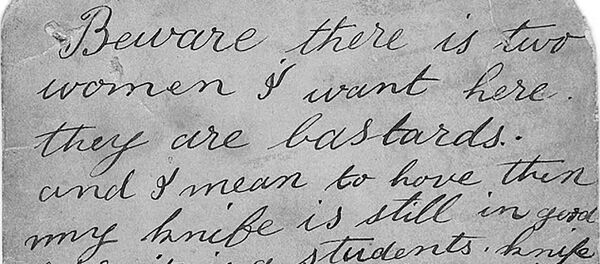 Beware there is two
women I want here.
they are bastards.
and I mean to have them
my knife is still in good
students. knife